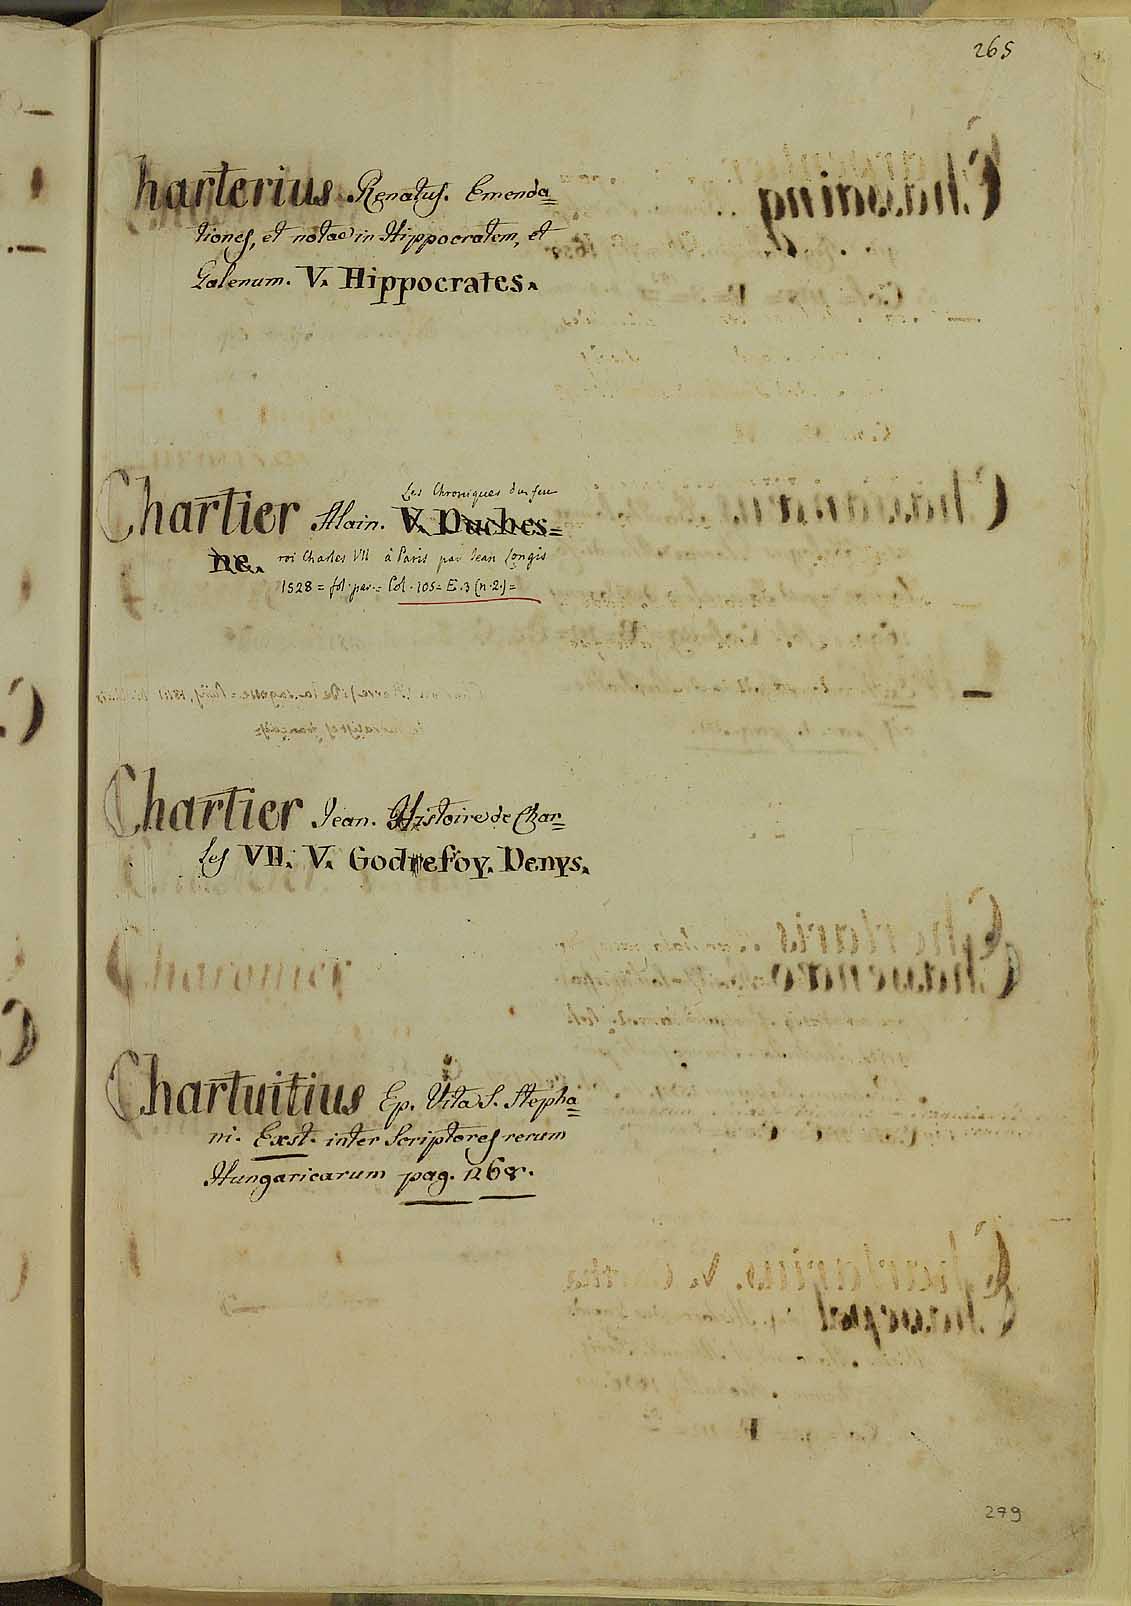 265
Charterius Renatus. Emenda=
tiones, et notae in Hippocratem, et
Galenum. V. Hippocrates.
Les Chroniques du feu
Chartier Alain. V. Duches=
ne. roi Charles VII à Paris par Jean Longis
1528 = fol. par. = Col. 105 = E. 3 (n. 2.) =
Chartier Jean. Histoire de Char=
les VII. V. Godrefoy. Denys.
Chartuitius Ep. Vita S. Stepha=
ni. Exst. inter Scriptores rerum
Hungaricarum pag. 1268.
279